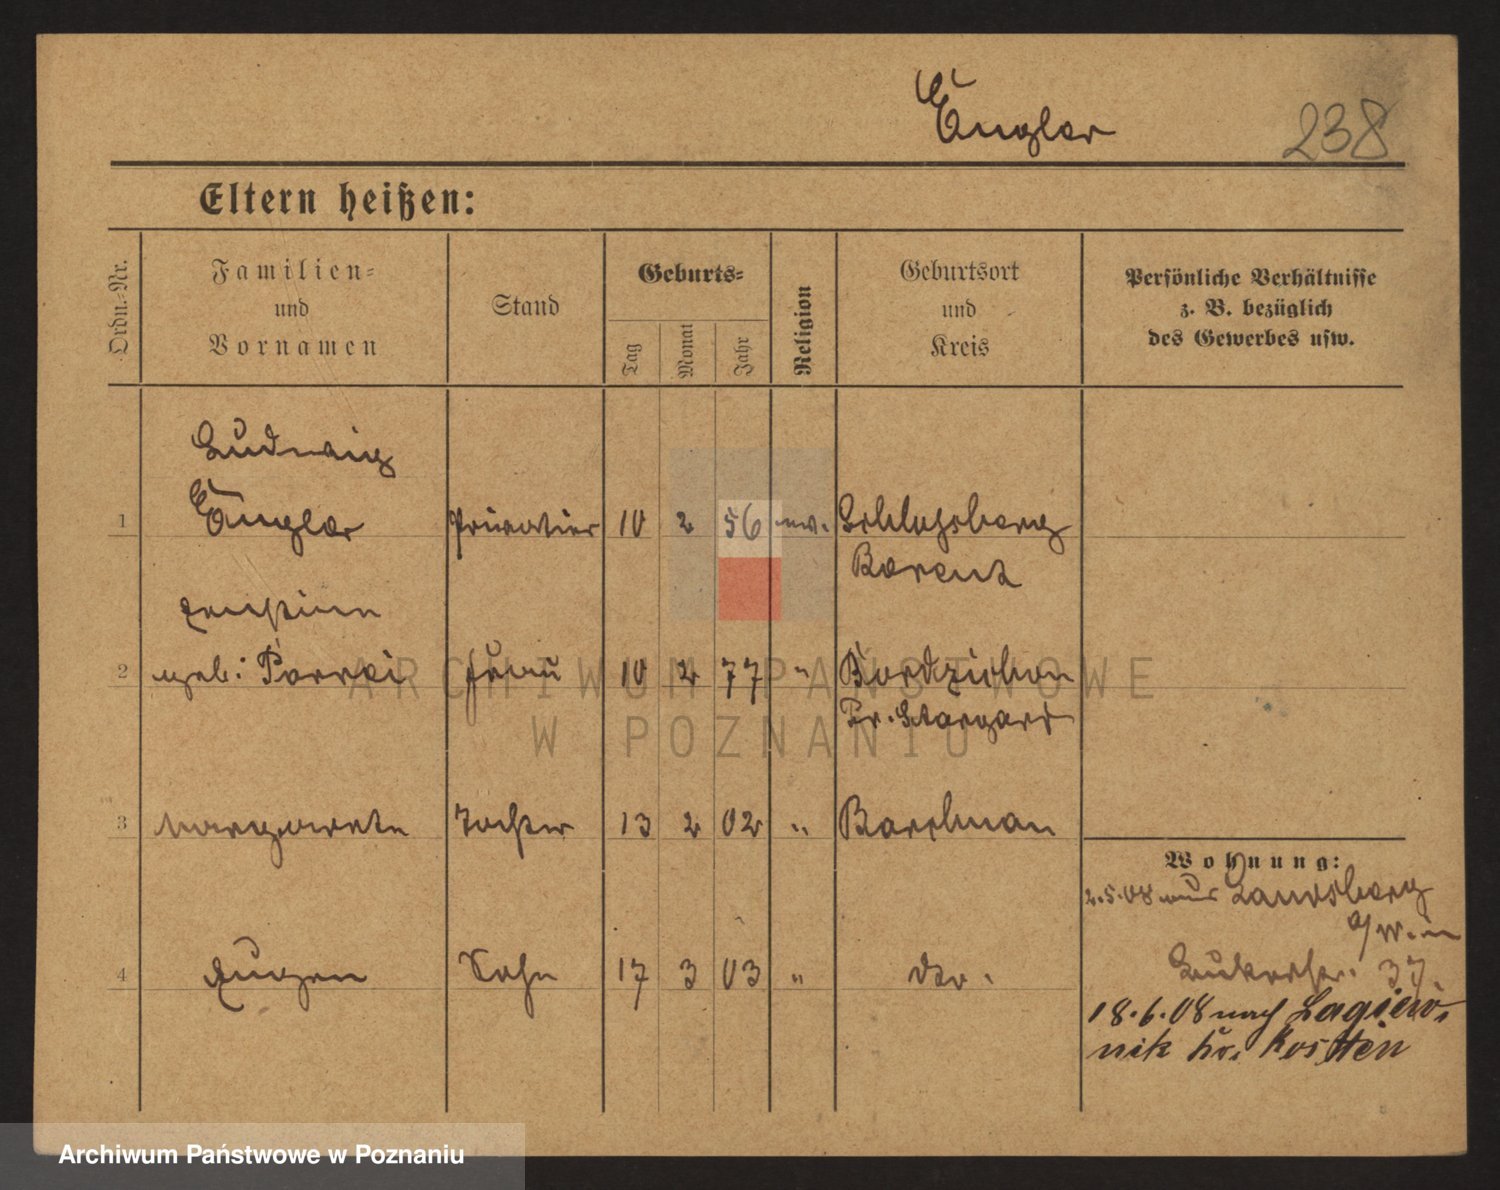 Engler
238
Eltern heißen:
Ordn.-Nr.
Familien-
und
Vornamen
Stand
Geburts-
Tag
Monat
Jahr
Religion
Geburtsort
und
Kreis
Persönliche Verhältnisse
z. B. bezüglich
des Gewerbes usw.
Ludwig
1 Engler Privatier 10 2 56 ev.
Berent
2 geb: Frau 10 2 77 "
Pr. Stargard
3 Margarete Tochter 13 2 02 "
Wohnung:
2.5.08 aus Landsberg
a/W. in
4 Eugen Sohn 17 3 03 " dto. 37
18.6.08 nach Lagiew-
nik Kr. Kosten
ARCHIWUM PAŃSTWOWE
W POZNANIU
Archiwum Państwowe w Poznaniu